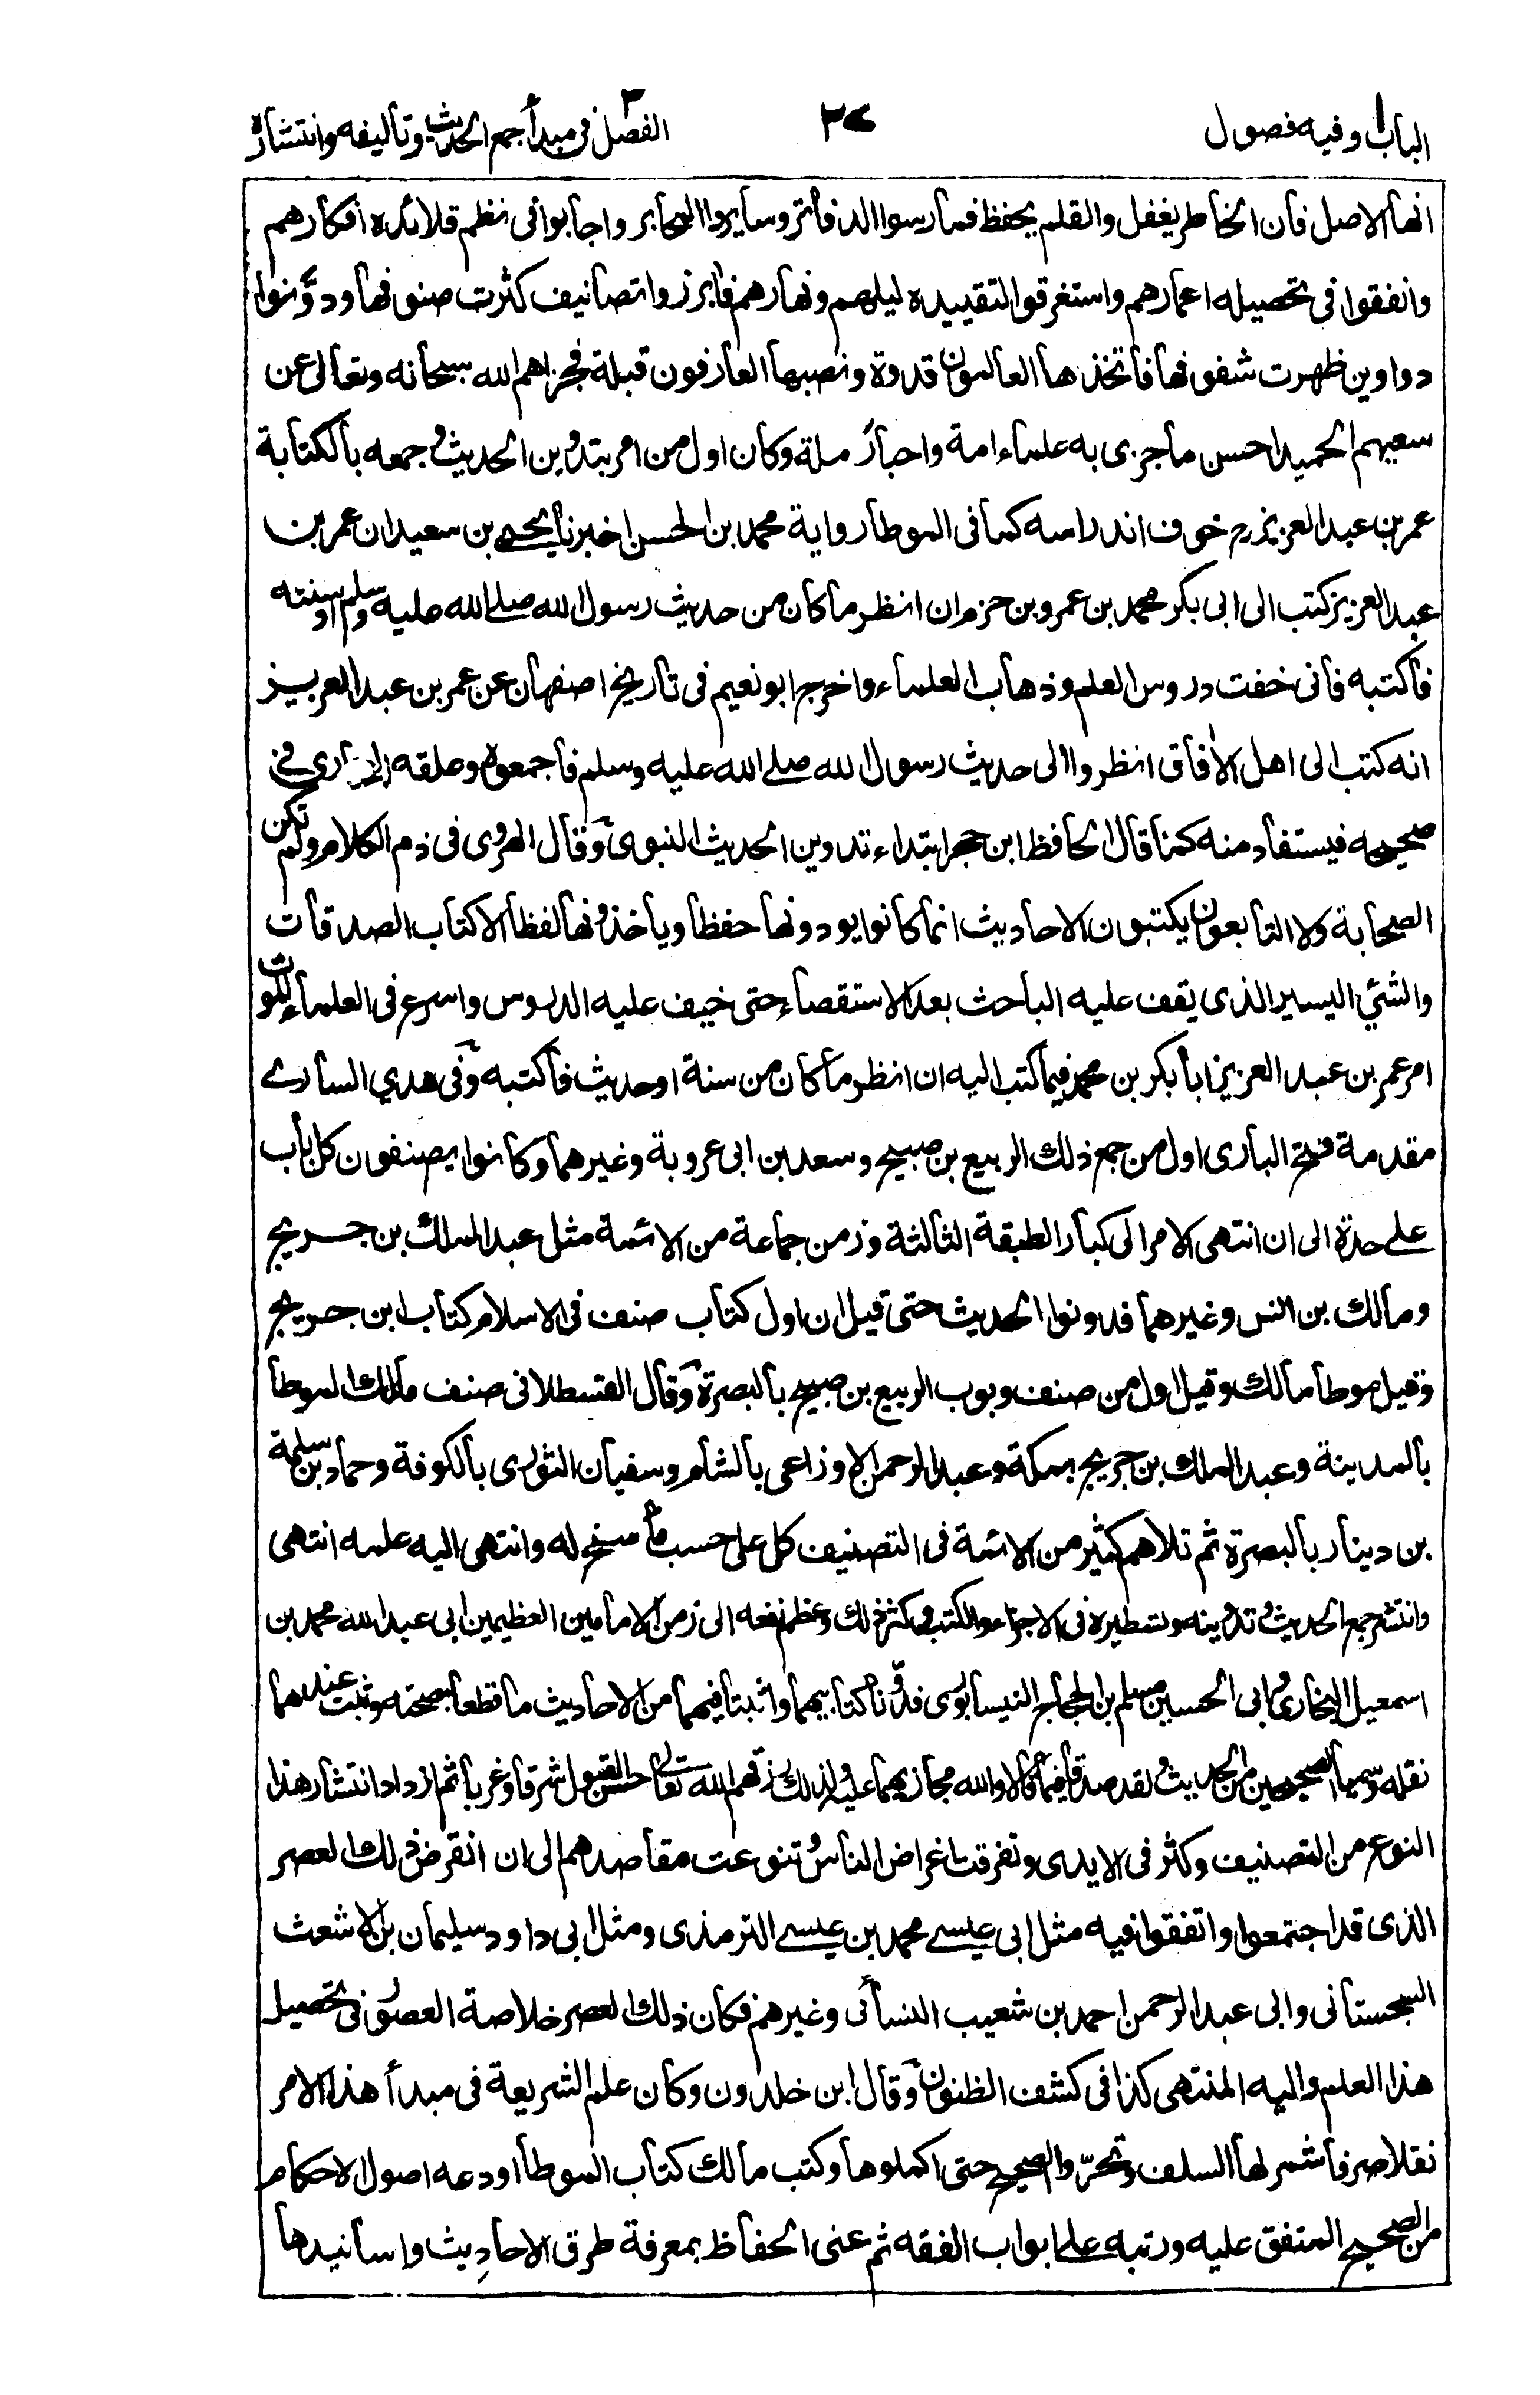 الباب ١ وفيه فصول
٢٧
الفصل ٣ في مبدأ جمع الحديث وتأليفه وانتشاره
انها الاصل فان الخاطر يغفل والقلم يحفظ فمارسوا الدفاتر وسايروا المحابر واجابوا في نظم قلائده افكارهم
وانفقوا في تحصيله اعمارهم واستغرقوا لتقييده ليلهم ونهارهم فابرزوا تصانيف كثرت صنوفها ودوّنوا
دواوين ظهرت شفوفها فاتخذها العالمون قدوة ونصبها العارفون قبلة فجزاهم الله سبحانه وتعالى عن
سعيهم الحميد احسن ما جزى به علماء امة واحبار ملة وكان اول من امر بتدوين الحديث وجمعه بالكتابة
عمر بن عبد العزيز رح خوف اندراسه كما في الموطا رواية محمد بن الحسن اخبرنا يحيى بن سعيد ان عمر بن
عبد العزيز كتب الى ابي بكر محمد بن عمرو بن حزم ان انظر ما كان من حديث رسول الله صلى الله عليه وسلم او سنته
فاكتبه فاني خفت دروس العلم وذهاب العلماء واخرج ابو نعيم في تاريخ اصفهان عن عمر بن عبد العزيز
انه كتب الى اهل الآفاق انظروا الى حديث رسول الله صلى الله عليه وسلم فاجمعوه وعلقه في
صحيحه فيستفاد منه كما قال الحافظ ابن حجر ابتداء تدوين الحديث النبوي وقال الهروي في ذم الكلام ولم تكن
الصحابة ولا التابعون يكتبون الاحاديث انما كانوا يودونها حفظا وياخذونها لفظا الا كتاب الصدقات
والشئ اليسير الذي يقف عليه الباحث بعد الاستقصاء حتى خيف عليه الدروس واسرع في العلماء الموت
امر عمر بن عبد العزيز ابا بكر بن محمد فيما كتب اليه ان انظر ما كان من سنة او حديث فاكتبه وفي هدي الساري
مقدمة فتح الباري اول من جمع ذلك الربيع بن صبيح وسعد بن ابي عروبة وغيرهما وكانوا يصنفون كل باب
على حدة الى ان انتهى الامر الى كبار الطبقة الثالثة وزمن جماعة من الائمة مثل عبد الملك بن جريج
ومالك بن انس وغيرهما فدونوا الحديث حتى قيل ان اول كتاب صنف في الاسلام كتاب ابن جريج
وقيل موطا مالك وقيل اول من صنف وبوب الربيع بن صبيح بالبصرة وقال القسطلاني صنف مالك الموطا
بالمدينة وعبد الملك بن جريج بمكة وعبد الرحمن الاوزاعي بالشام وسفيان الثوري بالكوفة وحماد بن سلمة
بن دينار بالبصرة ثم تلاهم كثير من الائمة في التصنيف كل على حسب ما سنح له وانتهى اليه علمه انتهى
وانتشر جمع الحديث وتدوينه وتسطيره في الاجزاء والكتب وكثر ذلك وعظم نفعه الى زمن الامامين العظيمين ابي عبد الله محمد بن
اسمعيل البخاري وابي الحسين مسلم بن الحجاج النيسابوري فدوّنا كتابيهما واثبتا فيهما من الاحاديث ما قطعا بصحته وثبت عندهما
نقله وسميا الصحيحين من الحديث ولقد صدقا فيما قالا والله مجازيهما عليه ولذلك رزقهم الله تعالى حسن القبول شرقا وغربا ثم ازداد انتشار هذا
النوع من التصنيف وكثر في الايدي وتفرقت اغراض الناس وتنوعت مقاصدهم الى ان انقرض ذلك العصر
الذي قد اجتمعوا واتفقوا فيه مثل ابي عيسى محمد بن عيسى الترمذي ومثل ابي داود سليمان بن الاشعث
السجستاني وابي عبد الرحمن احمد بن شعيب النسائي وغيرهم فكان ذلك العصر خلاصة العصور في تحصيل
هذا العلم واليه المنتهى كذا في كشف الظنون وقال ابن خلدون وكان علم الشريعة في مبدأ هذا الامر
نقلا صرفا شمر لها السلف وتحرّوا الصحيح حتى اكملوها وكتب مالك كتاب الموطا اودعه اصول الاحكام
من الصحيح المتفق عليه ورتبه على ابواب الفقه ثم عنى الحفاظ بمعرفة طرق الاحاديث واسانيدها